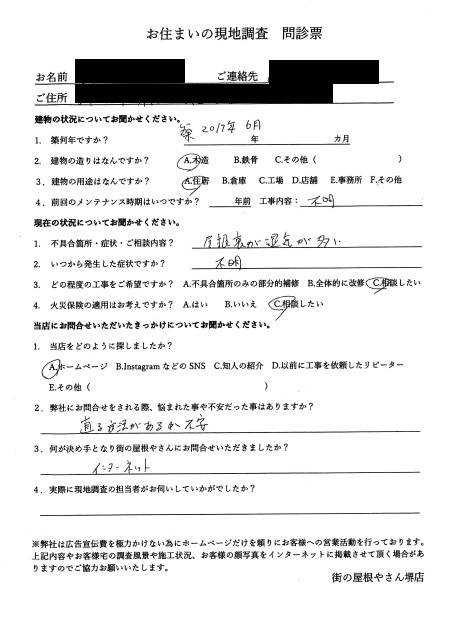 お住まいの現地調査 問診票
お名前 ご連絡先
ご住所
建物の状況についてお聞かせください。
1. 築何年ですか？ 築 2017年 6月 年 カ月
2. 建物の造りはなんですか？ A.木造 B.鉄骨 C.その他（ ）
3. 建物の用途はなんですか？ A.住居 B.倉庫 C.工場 D.店舗 E.事務所 F.その他
4. 前回のメンテナンス時期はいつですか？ 年前 工事内容： 不明
現在の状況についてお聞かせください。
1. 不具合箇所・症状・ご相談内容？ 屋根裏が湿気が多い
2. いつから発生した症状ですか？ 不明
3. どの程度の工事をご希望ですか？ A.不具合箇所のみの部分的補修 B.全体的に改修 C.相談したい
4. 火災保険の適用はお考えですか？ A.はい B.いいえ C.相談したい
当店にお問合せいただいたきっかけについてお聞かせください。
1. 当店をどのように探しましたか？
A.ホームページ B.InstagramなどのSNS C.知人の紹介 D.以前に工事を依頼したリピーター
E.その他（ ）
2. 弊社にお問合せをされる際、悩まれた事や不安だった事はありますか？
直る方法があるか不安
3. 何が決め手となり街の屋根やさんにお問合せいただきましたか？
インターネット
4. 実際に現地調査の担当者がお伺いしていかがでしたか？
※弊社は広告宣伝費を極力かけない為にホームページだけを頼りにお客様への営業活動を行っております。
上記内容やお客様宅の調査風景や施工状況、お客様の顔写真をインターネットに掲載させて頂く場合があ
りますのでご協力お願いいたします。
街の屋根やさん堺店